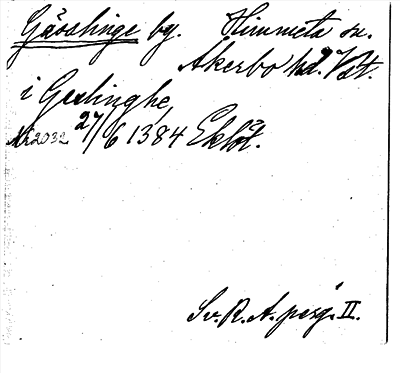 Gässlinge by. Himmeta sn.
Åkerbo hd. Vst.
i Geslinghe,
Nr 2032 27/6 1384 Eklöt.
Sv. R. A. perg. II.